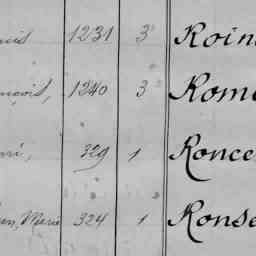 uis 1231 3 Roin
nçois, 1240 3 Rome
nri, 329 1 Ronce
Marie 324 1 Ronse